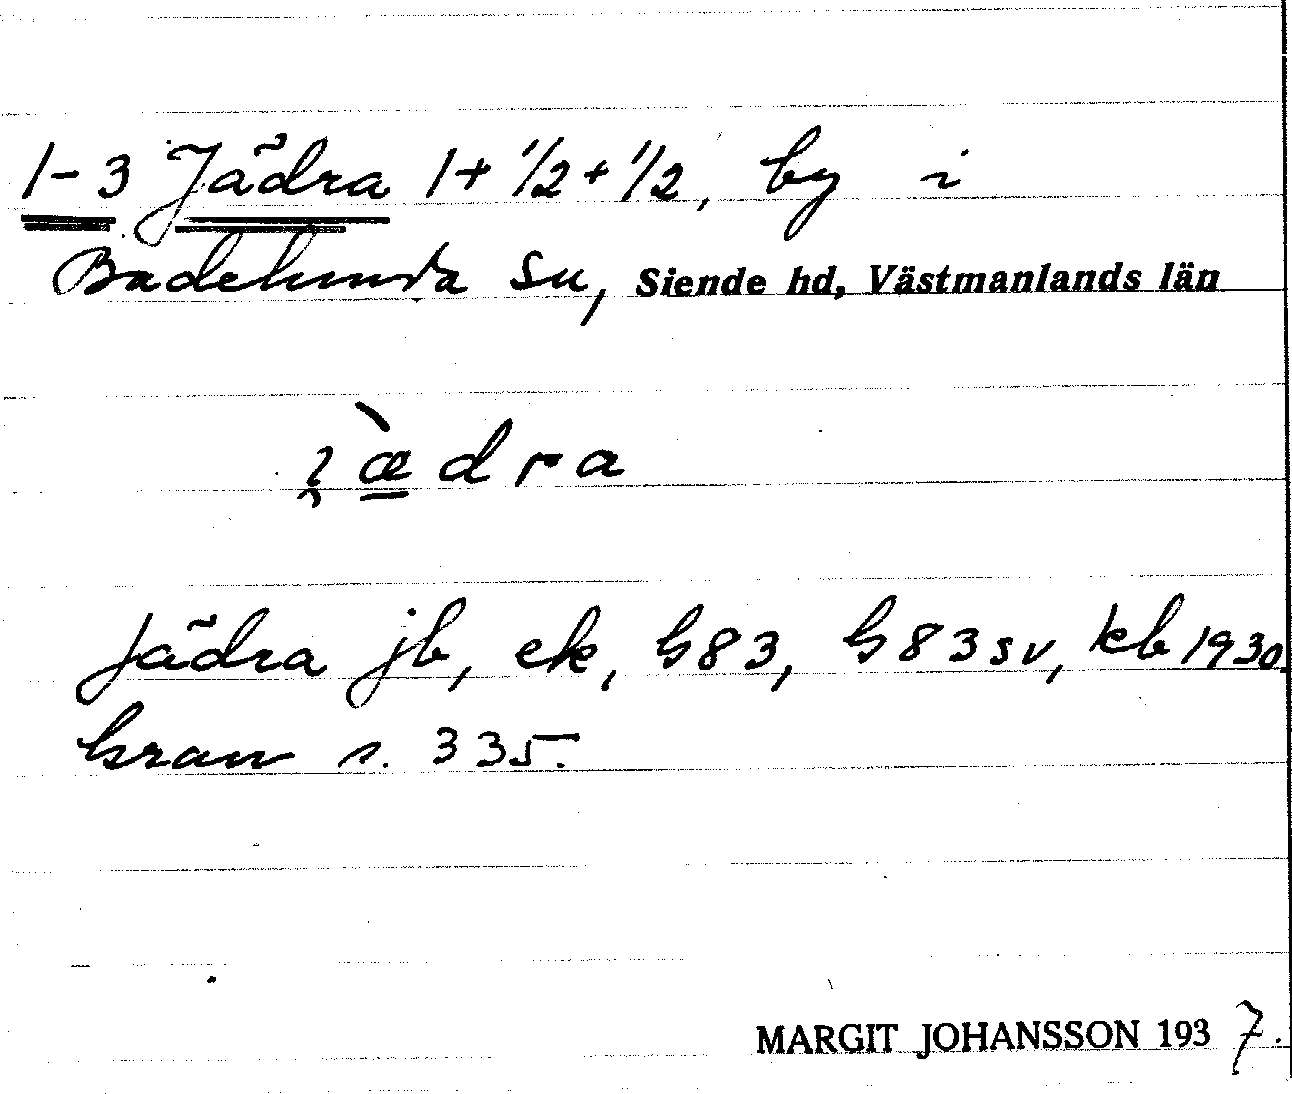 1-3 Jädra 1+1/2+1/2, by i
Badelunda sn, Siende hd, Västmanlands län
i̯æ̀dra
Jädra jb, ek, h83, h83sv, kb 1930.
kran s. 335.
MARGIT JOHANSSON 1937.